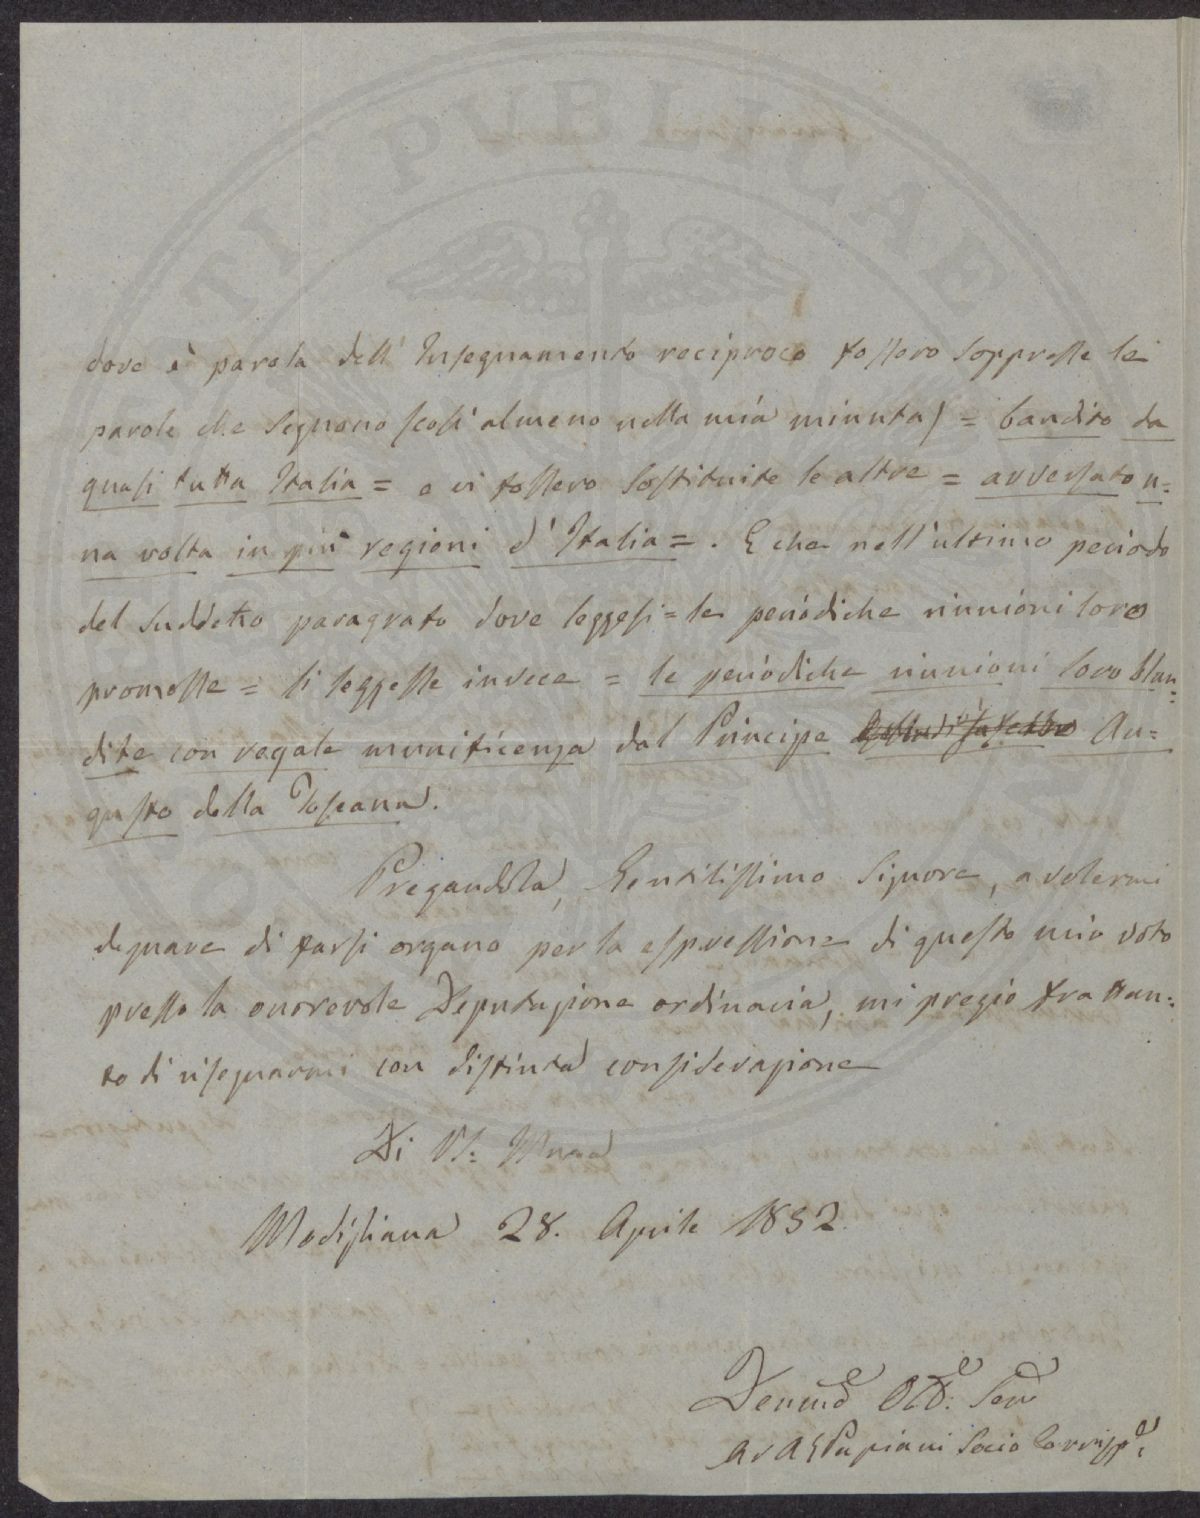 TI PVBLICAE
dove è parola dell' Insegnamento reciproco fossero soppresse le
parole che segnono (così almeno nella mia minuta) = bandito da
quasi tutta Italia = e vi fossero sostituite le altre = avversato u=
na volta in più regioni d' Italia = . E che nell' ultimo periodo
del suddetto paragrafo dove leggesi = le periodiche riunioni loro
promosse = si leggesse invece = le periodiche riunioni loro blan=
dite con regale munificenza dal Principe Au=
gusto della Toscana.
Pregandola, Gentilissimo Signore, a volermi
degnare di farsi organo per la espressione di questo mio voto
presso la onorevole Deputazione ordinaria, mi pregio frattan=
to di risegnarmi con distinta considerazione
Di VS: Illma
Modigliana 28. Aprile 1852.
Devmo Obb: Serv
Socio Corrisp: